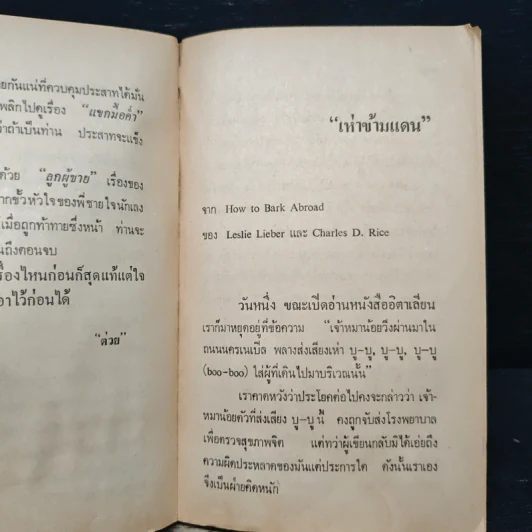 ยกันแน่ที่ควบคุมประสาทได้มัน
พลิกไปดูเรื่อง “แขกมื้อค่ำ”
ว่าถ้าเป็นท่าน ประสาทจะแข็ง
ด้วย “ลูกผู้ชาย” เรื่องของ
ากขั้วหัวใจของพี่ชายใจนักเลง
เมื่อถูกท้าทายซึ่งหน้า ท่านจะ
นถึงตอนจบ
รื่องไหนก่อนก็สุดแท้แต่ใจ
อาไว้ก่อนได้
“ต่วย”
“เห่าข้ามแดน”
จาก How to Bark Abroad
ของ Leslie Lieber และ Charles D. Rice
วันหนึ่ง ขณะเปิดอ่านหนังสืออิตาเลียน
เราก็มาหยุดอยู่ที่ข้อความ “เจ้าหมาน้อยวิ่งผ่านมาใน
ถนนนครเนเปิ้ล พลางส่งเสียงเห่า บู–บู, บู–บู, บู–บู
(boo-boo) ใส่ผู้ที่เดินไปมาบริเวณนั้น”
เราคาดหวังว่าประโยคต่อไปคงจะกล่าวว่า เจ้า-
หมาน้อยตัวที่ส่งเสียง บู–บู นี้ คงถูกจับส่งโรงพยาบาล
เพื่อตรวจสุขภาพจิต แต่ทว่าผู้เขียนกลับมิได้เอ่ยถึง
ความผิดประหลาดของมันแต่ประการใด ดังนั้นเราเอง
จึงเป็นฝ่ายคิดหนัก